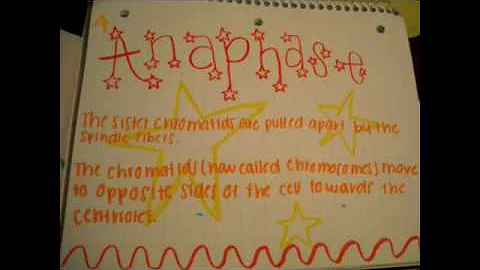 Anaphase
The sister chromatids are pulled apart by the
spindle fibers.
The chromatids (now called chromosomes) move
to opposite sides of the cell towards the
centrioles.